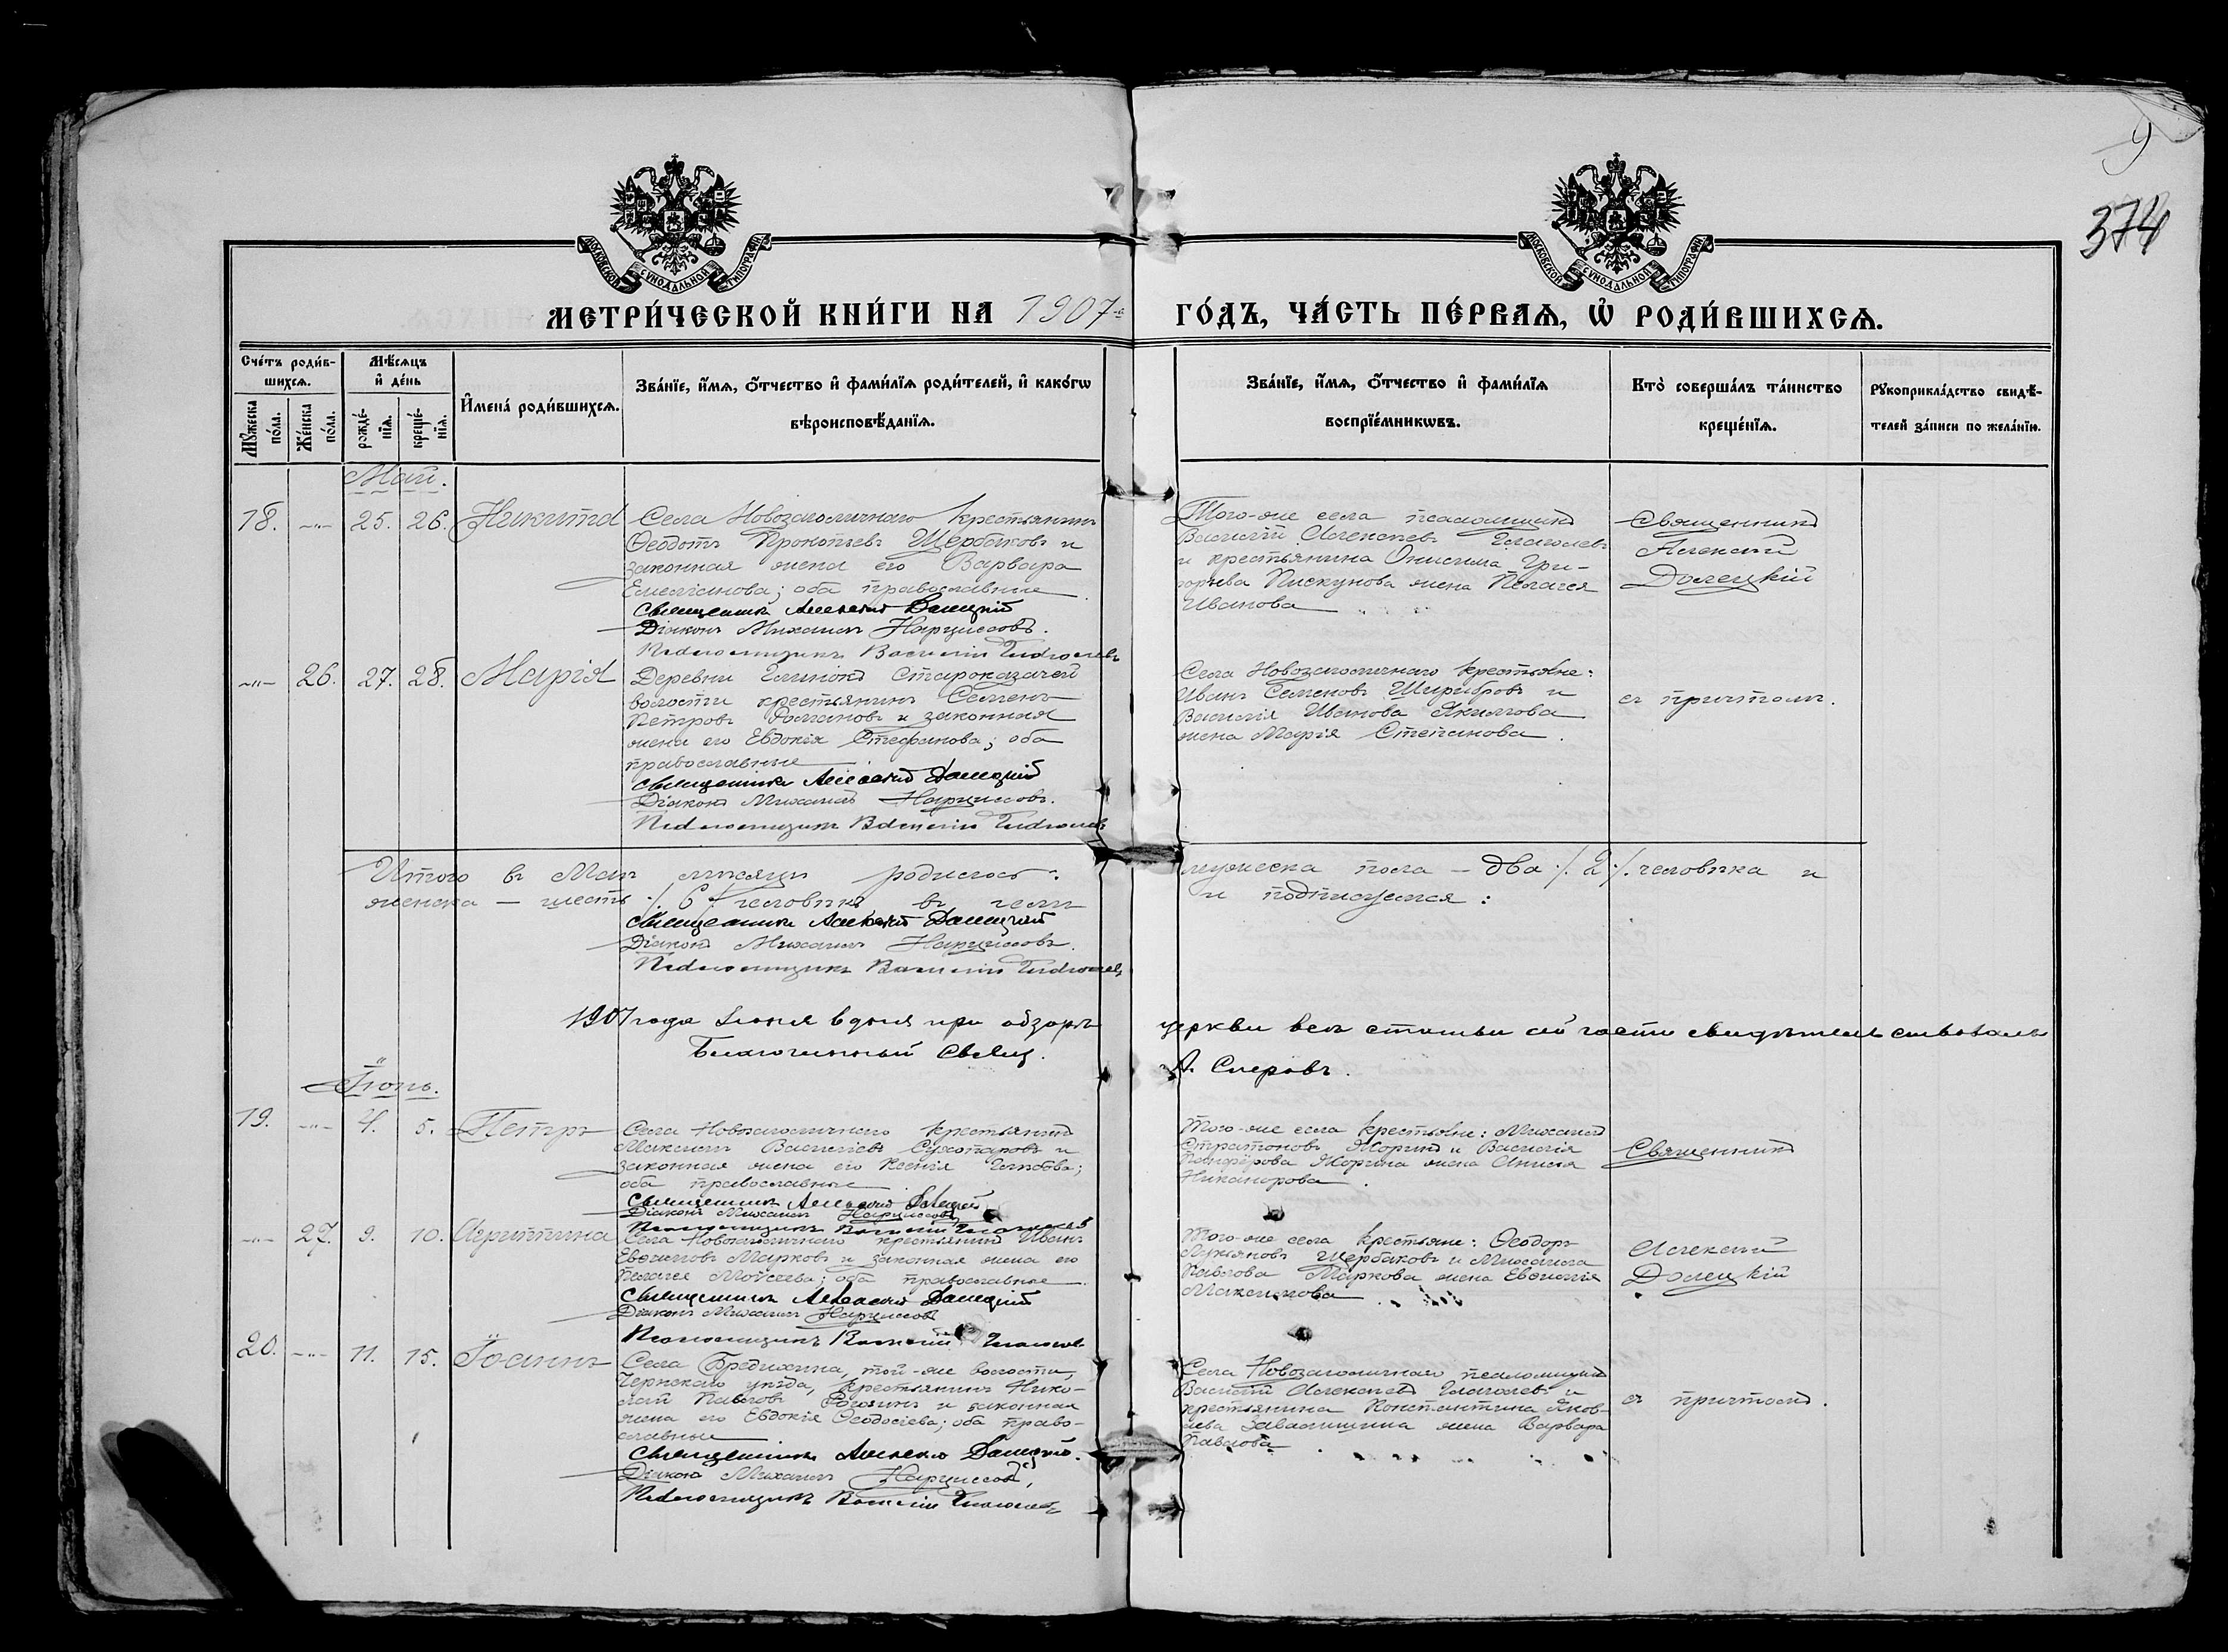 9
374
МОСКОВСКОЙ СѴНОДАЛЬНОЙ ТИПОГРАФІИ
МОСКОВСКОЙ СѴНОДАЛЬНОЙ ТИПОГРАФІИ
МЕТРИ́ЧЕСКОЙ КНИ́ГИ НА 1907-й ГО́ДЪ, ЧА́СТЬ ПЕ́РВАѦ, Ѡ҆ РОДИ́ВШИХСѦ.
Сче́тъ роди́в-
шихсѧ.
Мꙋ́жеска по́ла.
Же́нска по́ла.
Мѣ́сѧцъ
и҆ де́нь
рожде́-
нїѧ.
креще́-
нїѧ.
И҆мена̀ роди́вшихсѧ.
Зва́нїе, и҆́мѧ, ѻ҆́тчество и҆ фами́лїѧ роди́телей, и҆ како́гѡ
вѣроисповѣ́данїѧ.
Зва́нїе, и҆́мѧ, ѻ҆́тчество и҆ фами́лїѧ
воспрїе́мникѡвъ.
Кто̀ соверша́лъ та́инство
креще́нїѧ.
Рꙋкоприкла́дство свидѣ́-
телей за́писи по жела́нїю.
Май.
18. -"- 25. 26. Никита
Села Новозаголичнаго крестьянинъ
Ѳеодотъ Прокопьевъ Щербаковъ и
законная жена его Варвара
Емелiанова; оба православные
Священникъ Алексій Долецкій
Діаконъ Михаилъ Нарциссовъ.
Псаломщикъ Василій Глаголевъ
Того-же села псаломщикъ
Василій Алексѣевъ Глаголевъ
и крестьянина Онисима Гри-
горьева Пискунова жена Пелагея
Иванова
Священникъ
Алексій
Долецкій
-"- 26. 27. 28. Марія
Деревни Староказачей
волости крестьянинъ Семенъ
Петровъ Романовъ и законная
жена его Евдокія Стефанова; оба
православные
Священникъ Алексій Долецкій
Діаконъ Михаилъ Нарциссовъ.
Псаломщикъ Василій Глаголевъ
Села Новозаголичнаго крестьяне:
Иванъ Семеновъ и
Василія Иванова Якимова
жена Марія Степанова.
съ причтомъ.
Итого въ Маѣ мѣсяцѣ родилось: мужеска пола – два ./. 2 ./. человѣка и
женска – шесть ./. 6 ./. человѣкъ, въ чемъ и подписуемся:
Священникъ Алексій Долецкій
Діаконъ Михаилъ Нарциссовъ.
Псаломщикъ Василій Глаголевъ
1907 года Іюня дня при обзорѣ церкви всѣ статьи сей части свидѣтельствовалъ
Благочинный Свящ. А. Сперовъ.
Іюнь.
19. -"- 4. 5. Петръ
Села Новозаголичнаго крестьянинъ
Максимъ Василіевъ Сухопаровъ и
законная жена его Ксенія
оба православные
Священникъ Алексій Долецкій
Діаконъ Михаилъ Нарциссовъ
Псаломщикъ Василій Глаголевъ
Того-же села крестьяне: Михаилъ
Стратоновъ Жоринъ и Василія
Жорина жена Анисія
Никанорова.
Священникъ
-"- 27. 9. 10. Агриппина
Села Новозаголичнаго крестьянинъ Иванъ
Евѳиміевъ Марковъ и законная жена его
Пелагея Моѵсеева; оба православные.
Священникъ Алексій Долецкій
Діаконъ Михаилъ Нарциссовъ
Псаломщикъ Василій Глаголевъ
Того-же села крестьяне: Ѳеодоръ
Лукьяновъ Щербаковъ и Михаила
Павлова Маркова жена Евѳимія
Максимова
Алексій
Долецкій
20. -"- 11. 15. Іоаннъ
Села Бредихина, той-же волости,
Чернскаго уѣзда, крестьянинъ Нико-
лай Павловъ и законная
жена его Евдокія Ѳеодосіева; оба право-
славные
Священникъ Алексій Долецкій.
Діаконъ Михаилъ Нарциссовъ,
Псаломщикъ Василій Глаголевъ
Села Новозаголичнаго псаломщикъ
Василій Алексѣевъ Глаголевъ и
крестьянина Константина Яков-
лева Завалишина жена Варвара
Павлова
съ причтомъ.